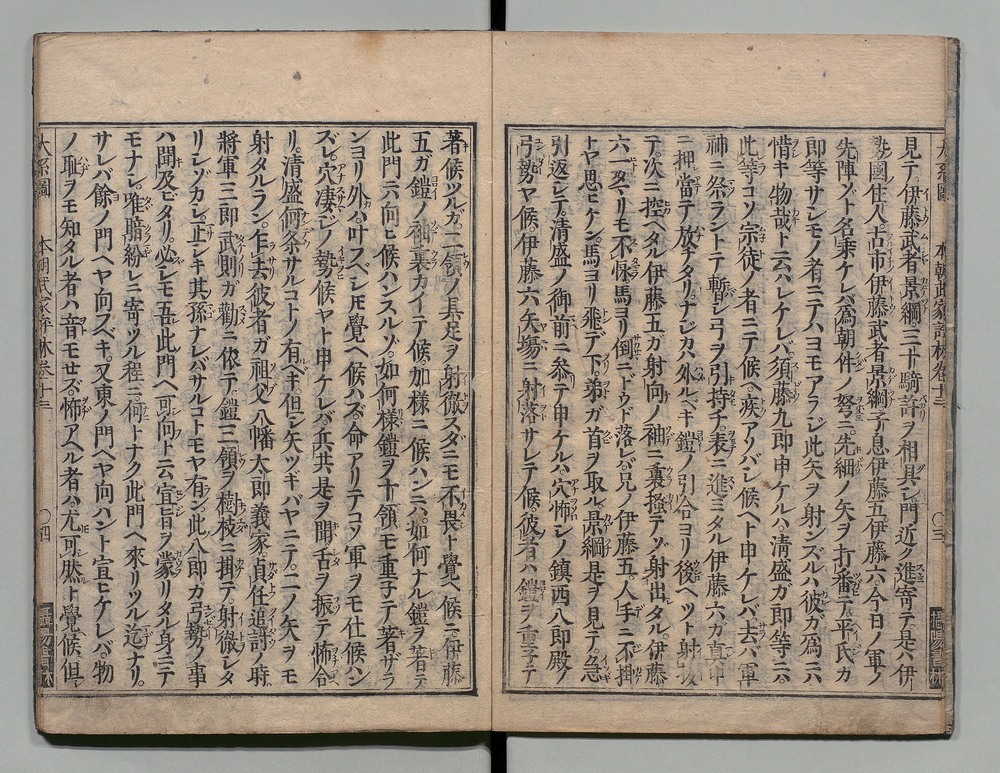 見テ伊藤武者景綱三十騎許ヲ相具シ門近ク進寄テ是ハ伊
勢國住人古市伊藤武者景綱子息伊藤五伊藤六今日ノ軍ノ
先陣ゾト名乗ケレバ爲朝件ノ弩ニ先細ノ矢ヲ打番ニ平氏ガ
郎等サレモノ者ニテハヨモアラシ此矢ヲ射ンズルハ彼ガ爲ニハ
惜キ物哉ト云ハレケレバ須藤九郎申ケルハ清盛ガ郎等ニハ
此等コソ宗徒ノ者ニテ候ヘ疾アリバシ候ヘト申ケレバ去バ軍
神ニ祭ラントテ暫シ弓ヲ引持チ表ニ進ミタル伊藤六ガ真中
ニ押當テ放チタリナジカハ外ルベキ鎧ノ引合ヨリ後ヘツト射
テ次ニ控ヘタル伊藤五ガ射向ノ袖ニ裏掻テゾ射出タル伊藤
六一タマリモ不怺馬ヨリ倒ニドウド落レバ兄ノ伊藤五人手ニ不掛
トヤ思ヒケン馬ヨリ飛デ下弟ガ首ヲ取ル景綱是ヲ見テ急
引返シテ清盛ノ御前ニ参テ申ケルハ穴怖シノ鎮西八郎殿ノ
弓勢ヤ候伊藤六矢場ニ射落サレテ候彼者ハ鎧ヲ重子テ
大系圖 本朝武家評林巻十三 〇三
著候ツルガ二領ノ具足ヲ射徹スダニモ不畏ト覺ヘ候ニ伊藤
五ガ鎧ノ袖裏カイテ候加様ニ候ハンニハ如何ナル鎧ヲ著テ
此門ニハ向ヒ候ハンスルゾ如何様鎧ヲ十領モ重子テ著ザラ
ンヨリ外ハ叶スベシ𪜈覺ヘ候ハズ命アリテコソ軍ヲモ仕候ハン
ズレ穴凄シノ勢候ヤト申ケレバ兵共是ヲ聞舌ヲ振テ怖合
リ清盛何条サルコトノ有ベキ但シ矢ツギバヤニテ二ノ矢ヲモ
射タルラン乍去彼者ガ祖父八幡太郎義家貞任追討ノ時
將軍三郎武則ガ勸ニ依テ鎧三領ヲ樹枝ニ掛テ射徹シタ
リシゾカシ正シキ其孫ナレバサルコトモヤ有ン此八郎ガ弓勢ノ事
ハ聞及ビタリ必シモ吾此門ヘ可向ト云宣旨ヲ蒙リタル身ニテ
モナシ唯暗紛レニ寄ツル程ニ何トナク此門ヘ來リツル迄ナリ
サレバ餘ノ門ヘヤ向フベキ又東ノ門ヘヤ向ハント宣モケレバ物
ノ恥ヲモ知タル者ハ音モセズ怖アヘル者ハ尤可然ト覺候但
大系圖 本朝武家評林巻十三 〇四